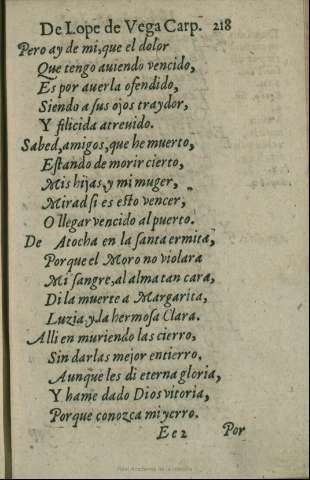 De Lope de Vega Carp. 218
Pero ay de mi, que el dolor
Que tengo auiendo vencido,
Es por auerla ofendido,
Siendo a sus ojos traydor,
Y filicida atreuido.
Sabed, amigos, que he muerto,
Estando de morir cierto,
Mis hijas, y mi muger,
Mirad si es esto vencer,
O llegar vencido al puerto.
De Atocha en la santa ermita,
Porque el Moro no violara
Mi sangre, al alma tan cara,
Di la muerte a Margarita,
Luzia, y la hermosa Clara.
Alli en muriendo las cierro,
Sin darlas mejor entierro,
Aunque les di eterna gloria,
Y hame dado Dios vitoria,
Porque conozca mi yerro.
Ee2 Por